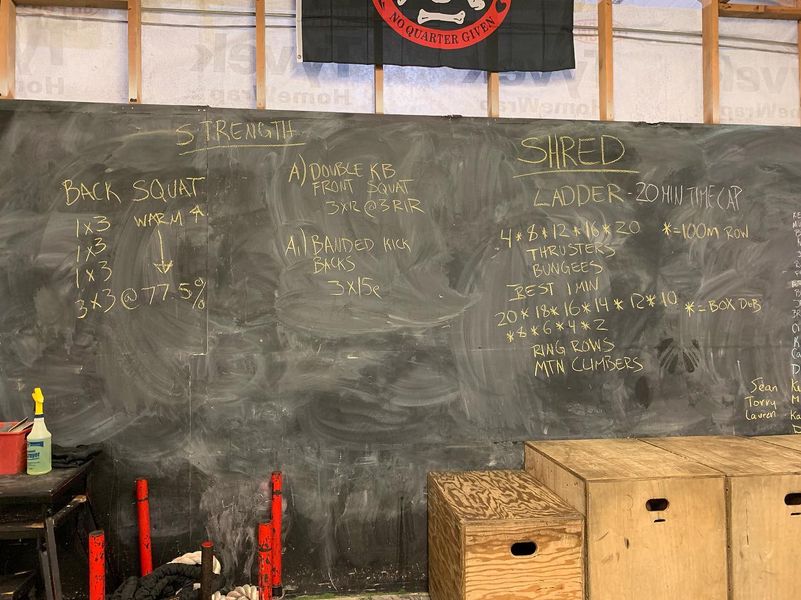 NO QUARTER GIVEN
Tyvek
HomeWrap
STRENGTH
BACK SQUAT
1x3 WARM
1x3
1x3
3x3 @ 77.5%
A) DOUBLE KB
FRONT SQUAT
3x12 @ 3 RIR
A.) BANDED KICK
BACKS
3x15e
SHRED
LADDER - 20 MIN TIME CAP
4*8*12*16*20 *=100M ROW
THRUSTERS
BUNGEES
REST 1 MIN
20*18*16*14*12*10 *=BOX D&B
*8*6*4*2
RING ROWS
MTN CLIMBERS
Sean
Torry
Lauren